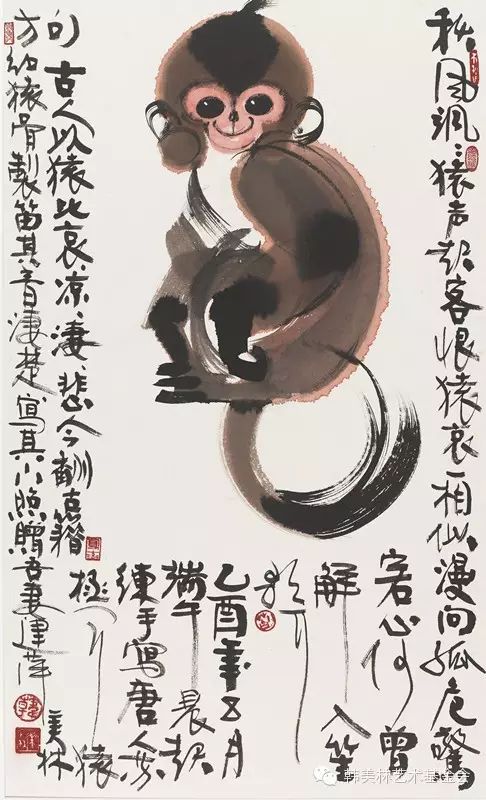 秋风飒飒猿声起客恨猿哀一相似漫向孤危驚
客心何曾
解入笙
歌耳
乙酉年五月
端午晨起
練手寫唐人
猿
句 古人以猿比哀凉凄悲今
方知猿骨製笛其音凄楚寫其小照贈吾妻建萍
美林
韩美林艺术基金会